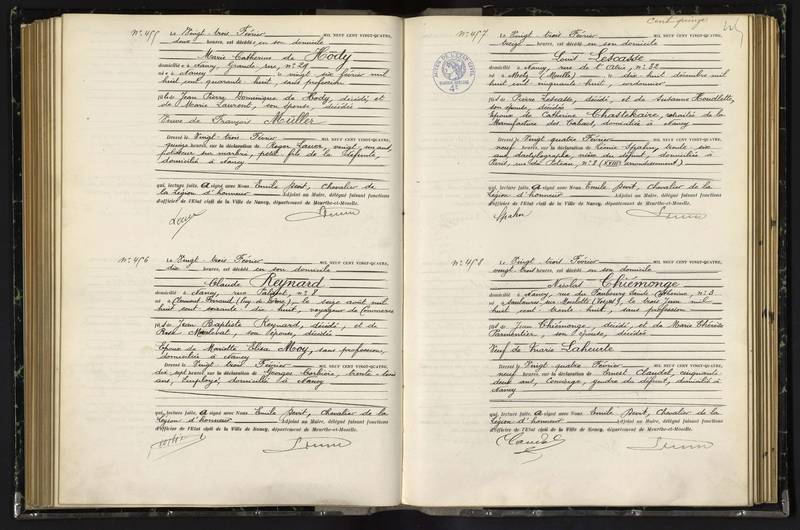 N° 455 Le Vingt trois Février MIL NEUF CENT VINGT-QUATRE,
deux heures, est décédée en son domicile
Marie Catherine de Hödy
domiciliée à Nancy, Grande rue, n° 29
née à Nancy le vingt six février mil
huit cent quarante huit, sans profession
fille de Jean Pierre Dominique de Hödy, décédé, et
de Marie Laurent, son épouse, décédée
Veuve de François Müller
Dressé le Vingt trois Février MIL NEUF CENT VINGT-QUATRE,
quinze heures, sur la déclaration de Roger Lauer, vingt un ans,
polisseur sur marbre, petit fils de la défunte,
domicilié à Nancy
qui, lecture faite, a signé avec Nous Emile Devit, Chevalier de
la Légion d'honneur Adjoint au Maire, délégué faisant fonctions
d'officier de l'Etat civil de la Ville de Nancy, département de Meurthe-et-Moselle.
Lauer
N° 456 Le Vingt trois Février MIL NEUF CENT VINGT-QUATRE,
dix heures, est décédé en son domicile
Claude Reynard
domicilié à Nancy, rue n° 8
né à Clermont Ferrand (Puy de Dôme), le seize août mil
huit cent soixante dix huit, voyageur de Commerce
fils de Jean Baptiste Reynard, décédé, et de
son épouse, décédée
Epoux de Mariette Elisa Moy, sans profession,
domiciliée à Nancy
Dressé le Vingt trois Février MIL NEUF CENT VINGT-QUATRE,
dix sept heures, sur la déclaration de Georges Corbière, trente trois
ans, employé, domicilié à Nancy
qui, lecture faite, a signé avec Nous Emile Devit, Chevalier de la
Légion d'honneur Adjoint au Maire, délégué faisant fonctions
d'officier de l'Etat civil de la Ville de Nancy, département de Meurthe-et-Moselle.
Cent quinze
N° 457 Le Vingt trois Février MIL NEUF CENT VINGT-QUATRE,
treize heures, est décédé en son domicile
Louis Lescasse
domicilié à Nancy, rue de n° 32
né à Metz (Moselle) le dix huit décembre mil
huit cent cinquante huit, cordonnier
fils de Pierre Lescasse, décédé, et de Suzanne Houdlette,
son épouse, décédée
Epoux de Catherine Chastekaire, retraitée de la
Manufacture des Tabacs, domiciliée à Nancy
Dressé le Vingt quatre Février MIL NEUF CENT VINGT-QUATRE,
neuf heures, sur la déclaration de Spahn, trente six
ans, dactylographe, nièce du défunt, domiciliée à
Paris, rue du Poteau, n° 8 (XVIII arrondissement)
qui, lecture faite, a signé avec Nous Emile Devit, Chevalier de la
Légion d'honneur Adjoint au Maire, délégué faisant fonctions
d'officier de l'Etat civil de la Ville de Nancy, département de Meurthe-et-Moselle.
Spahn
N° 458 Le Vingt trois Février MIL NEUF CENT VINGT-QUATRE,
vingt trois heures, est décédé en son domicile
Nicolas Chiémonge
domicilié à Nancy, rue du Faubourg Sainte Catherine, n° 3
né à (Vosges), le trois Juin mil
huit cent trente huit, sans profession
fils de Jean Chiémonge, décédé, et de Marie Thérèse
Parmentier, son épouse, décédée
Veuf de Marie Laheurte
Dressé le Vingt quatre Février MIL NEUF CENT VINGT-QUATRE,
neuf heures, sur la déclaration de Ernest Claudel, cinquante
deux ans, concierge, gendre du défunt, domicilié à
Nancy
qui, lecture faite, a signé avec Nous Emile Devit, Chevalier de la
Légion d'honneur Adjoint au Maire, délégué faisant fonctions
d'officier de l'Etat civil de la Ville de Nancy, département de Meurthe-et-Moselle.
Claudel